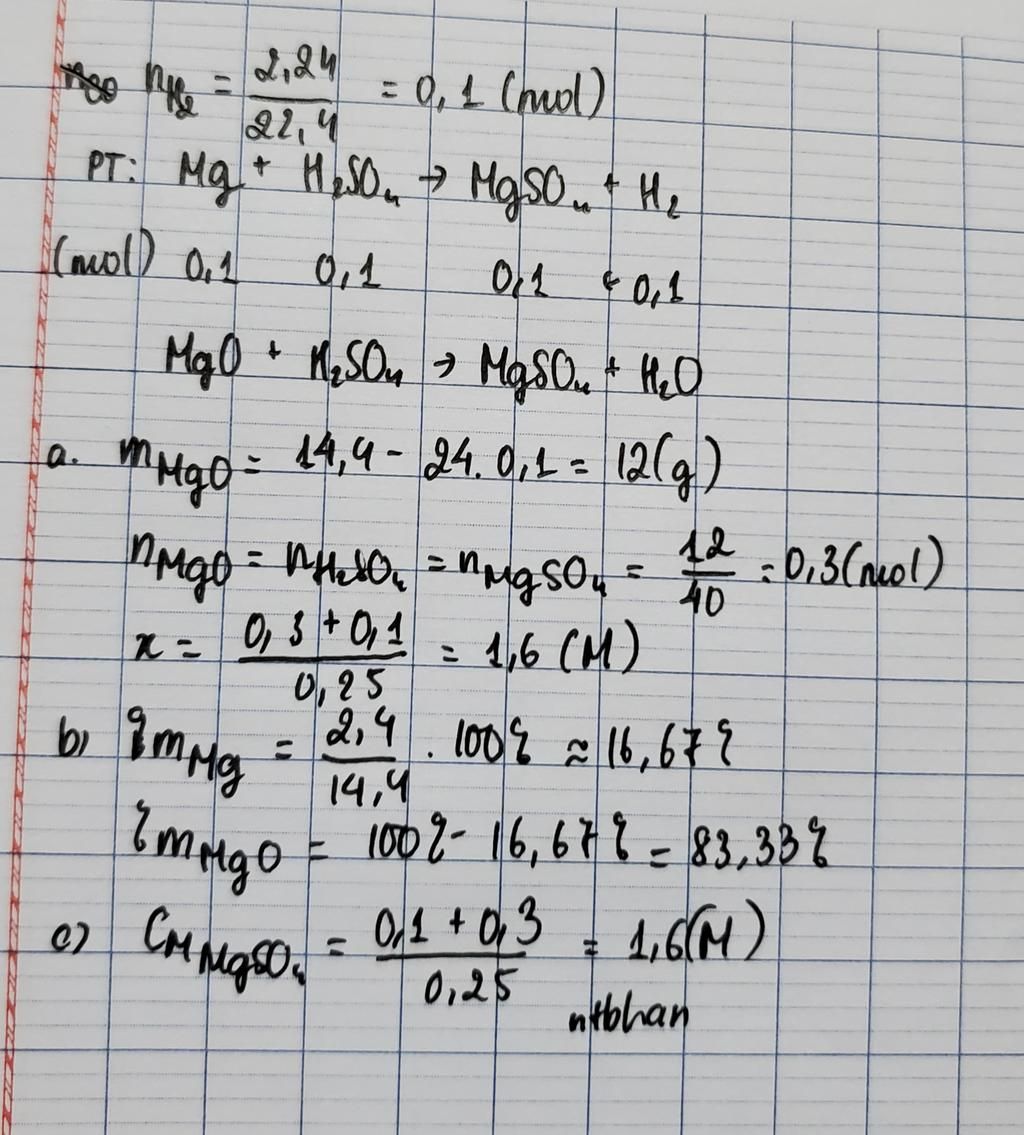 nH₂ = 2,24 / 22,4 = 0,1 (mol)
PT: Mg + H₂SO₄ → MgSO₄ + H₂
(mol) 0,1 0,1 0,1 ← 0,1
MgO + H₂SO₄ → MgSO₄ + H₂O
a. mMgO = 14,4 - 24. 0,1 = 12(g)
nMgO = nH₂SO₄ = nMgSO₄ = 12 / 40 = 0,3(mol)
x = 0,3 + 0,1 / 0,25 = 1,6 (M)
b) %mMg = 2,4 / 14,4 . 100% ≈ 16,67%
%mMgO = 100% - 16,67% = 83,33%
c) CM MgSO₄ = 0,1 + 0,3 / 0,25 = 1,6(M)
ntbhan